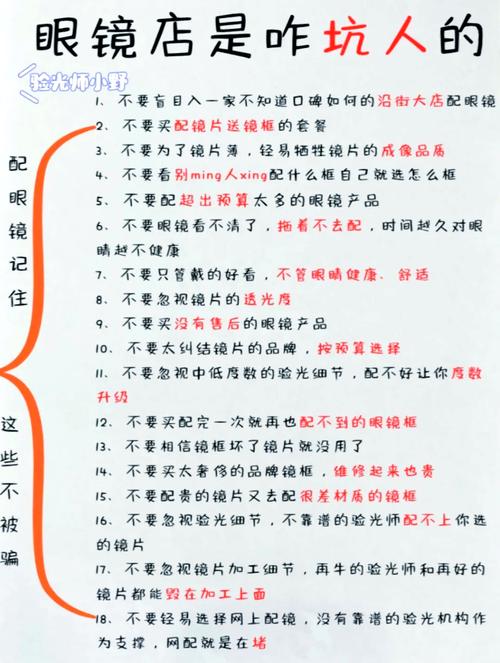 眼镜店是咋坑人的
验光师小野
配眼镜记住
这些不被骗
1、不要盲目入一家不知道口碑如何的沿街大店配眼镜
2、不要买配镜片送镜框的套餐
3、不要为了镜片薄，轻易牺牲镜片的成像品质
4、不要看别ming人xing配什么框自己就选怎么框
5、不要配超出预算太多的眼镜产品
6、不要眼镜看不清了，拖着不去配，时间越久对眼
睛越不健康
7、不要只管戴的好看，不管眼睛健康、舒适
8、不要忽视镜片的透光度
9、不要买没有售后的眼镜产品
10、不要太纠结镜片的品牌，按预算选择
11、不要忽视中低度数的验光细节，配不好让你度数
升级
12、不要买配完一次就再也配不到的眼镜框
13、不要相信镜框坏了镜片就没用了
14、不要买太奢侈的品牌镜框，维修起来也贵
15、不要配贵的镜片又去配很差材质的镜框
16、不要忽视验光细节，不靠谱的验光师配不上你选
的镜片
17、不要忽视镜片加工细节，再牛的验光师和再好的
镜片都能毁在加工上面
18、不要轻易选择网上配镜，没有靠谱的验光机构作
为支撑，网配就是在堵